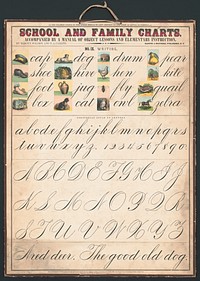 SCHOOL AND FAMILY CHARTS.
ACCOMPANIED BY A MANUAL OF OBJECT LESSONS AND ELEMENTARY INSTRUCTION.
No. IX. WRITING.
cap dog drum pear
shoe hive hen kite
foot jug fly quail
box cat owl zebra
a b c d e f g h i j k l m n o p q r s
t u v w x y z. 1 2 3 4 5 6 7 8 9 0
A B C D E F G H I J
K L M N O P Q R
S T U V W X Y Z
And deer. The good old dog.